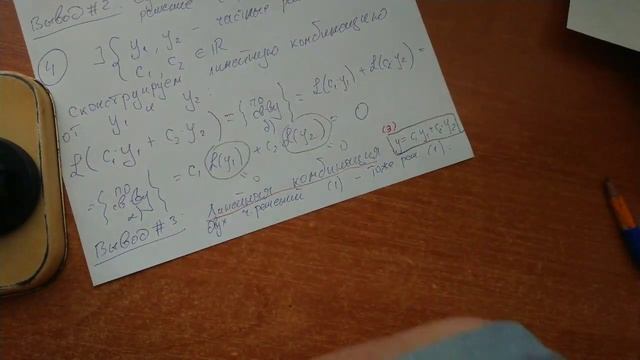 Вывод #2:
решение
④ ∃ { y₁, y₂ - частные
c₁ c₂ ∈ ℝ
сконструируем линейную комбинацию
от y₁ и y₂:
L(c₁y₁ + c₂y₂) = { по св-ву 2) } = L(c₁y₁) + L(c₂y₂) =
= { по св-ву } = c₁ L(y₁) + c₂ L(y₂) = 0
= 0 = 0
(3) y = c₁y₁ + c₂y₂
Вывод #3: Линейная комбинация
двух ч. решений (1) - тоже реш. (1).